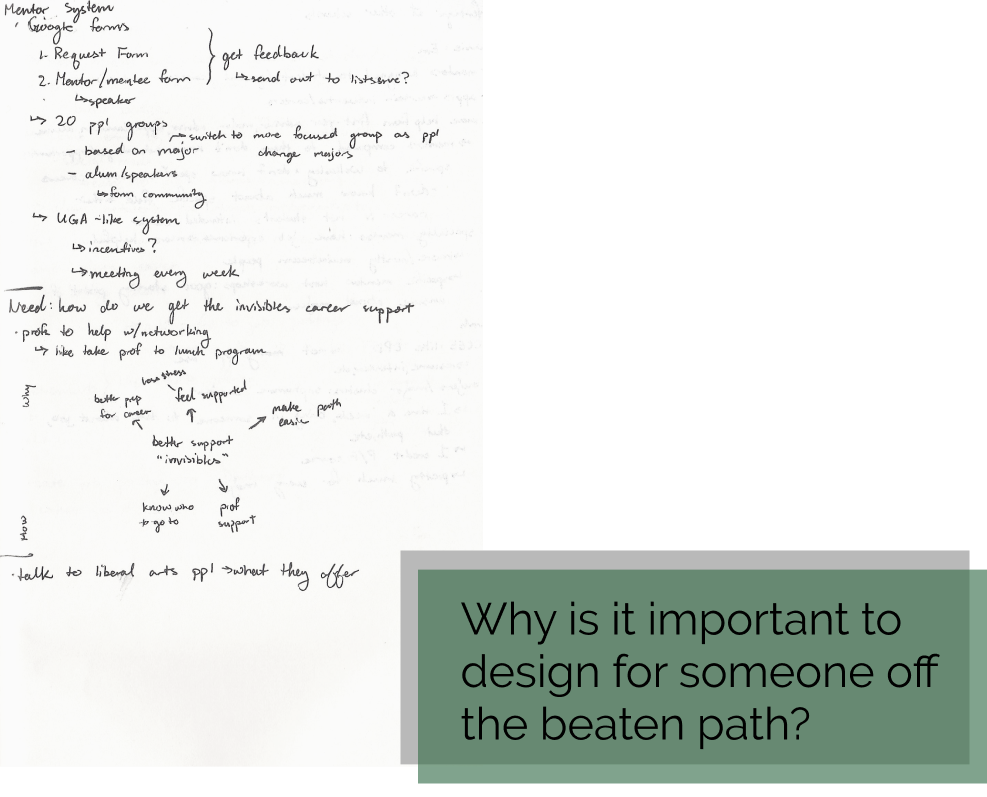 Mentor System
· Google forms
1. Request Form
2. Mentor/mentee form
↳ speaker
} get feedback
↳ send out to listserve?
↳ 20 ppl groups
→ switch to more focused group as ppl
change majors
- based on major
- alum/speakers
↳ form community
↳ UGA-like system
↳ incentives?
↳ meeting every week
Need: how do we get the invisibles career support
· profs to help w/networking
↳ like take prof to lunch program
Why
less stress
feel supported
better prep
for career
make path
easier
better support
"invisibles"
know who
to go to
prof
support
How
· talk to liberal arts ppl → what they offer
Why is it important to
design for someone off
the beaten path?